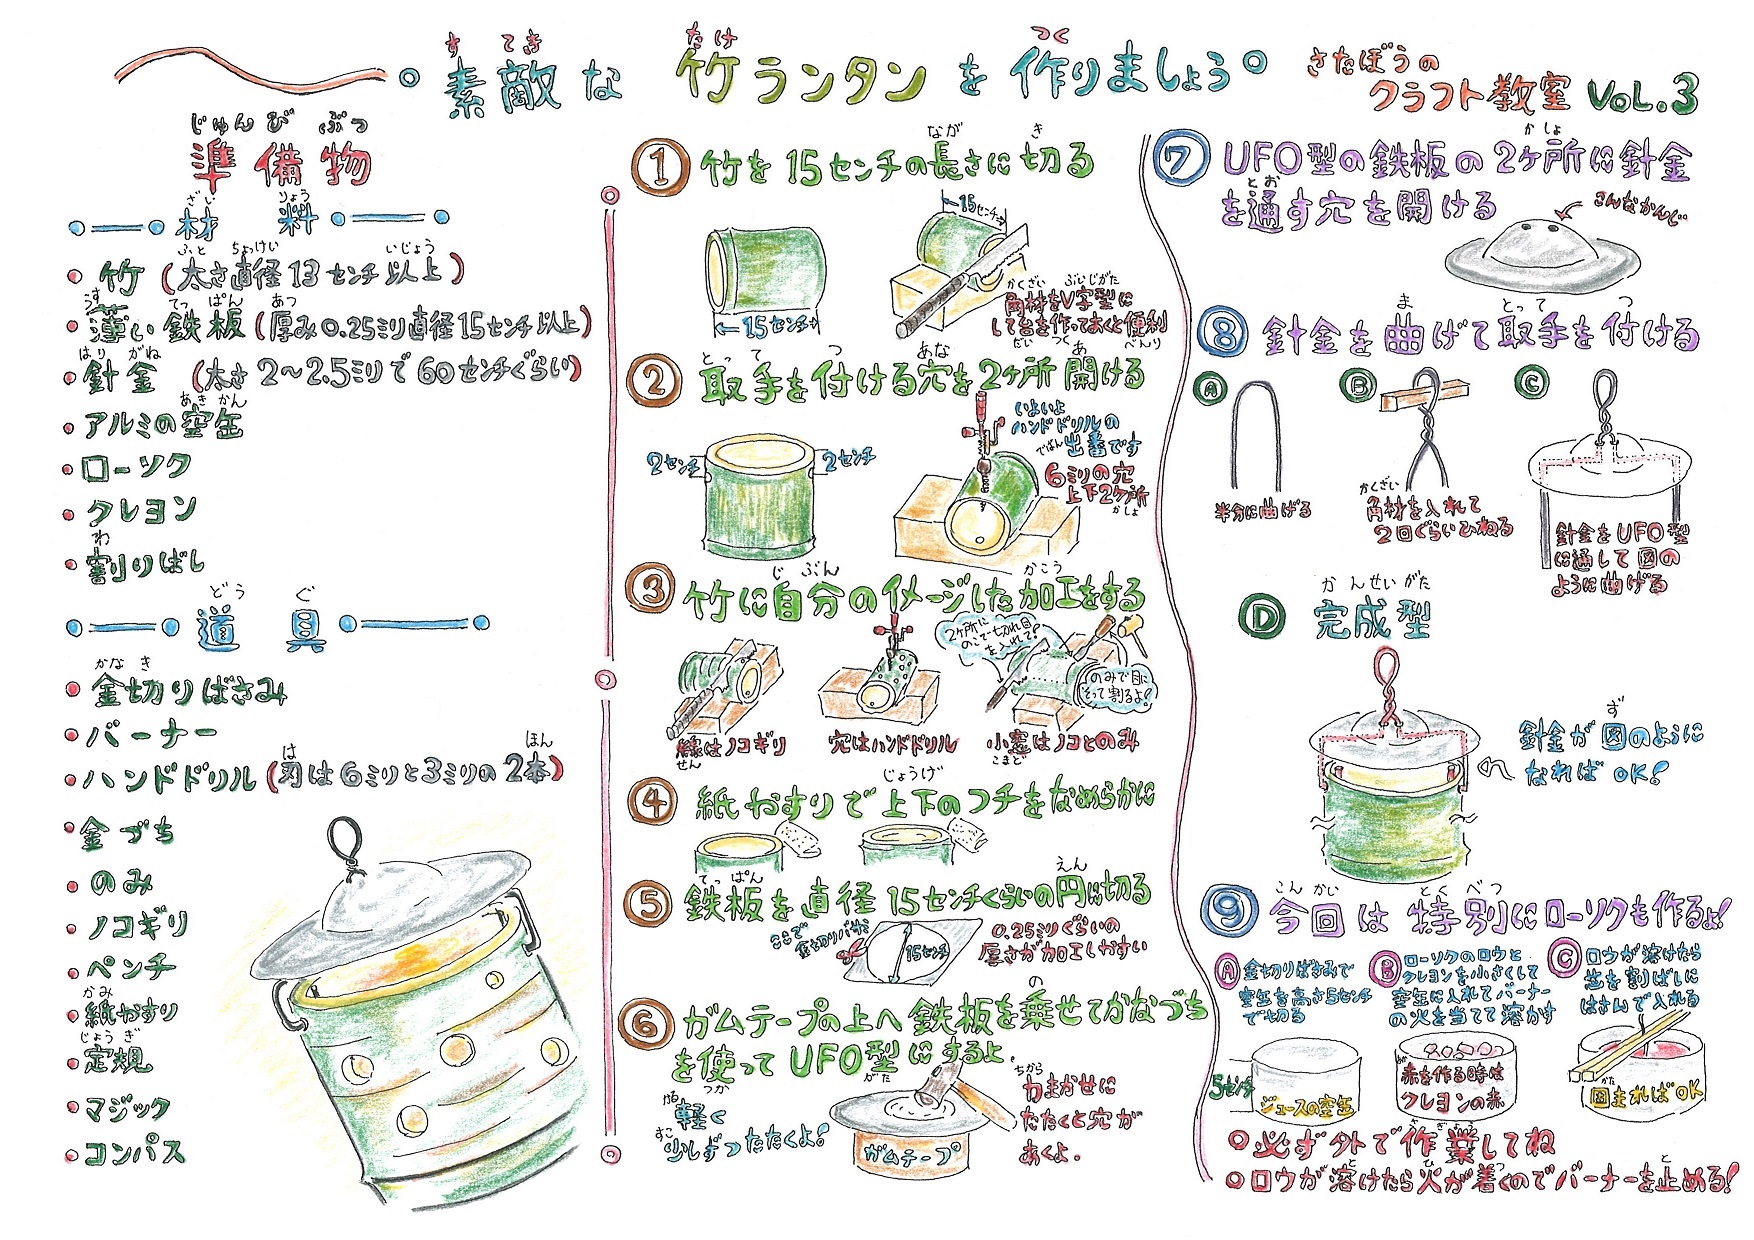 素敵な 竹ランタンを作りましょう
さたぼうの
クラフト教室 VOL.3
じゅんびぶつ
準備物
材料
・竹 (太さ直径13センチ以上)
・薄い鉄板 (厚み0.25ミリ直径15センチ以上)
・針金 (太さ2〜2.5ミリで60センチぐらい)
・アルミの空缶
・ローソク
・クレヨン
・割りばし
道具
・金切りばさみ
・バーナー
・ハンドドリル (刃は6ミリと3ミリの2本)
・金づち
・のみ
・ノコギリ
・ペンチ
・紙やすり
・定規
・マジック
・コンパス
① 竹を15センチの長さに切る
15センチ
15センチ
角材をV字型に
して台を作っておくと便利
② 取手を付ける穴を2ヶ所開ける
2センチ
2センチ
いよいよ
ハンドドリルの
出番です
6ミリの穴
上下2ヶ所
③ 竹に自分のイメージした加工をする
2ヶ所に
のこで切れ目
を入れて!
のみで目に
そって割るよ!
線はノコギリ
穴はハンドドリル
小窓はノコとのみ
④ 紙やすりで上下のフチをなめらかに
⑤ 鉄板を直径15センチくらいの円に切る
ここで
金切りバサミ
15センチ
0.25ミリぐらいの
厚さが加工しやすい
⑥ ガムテープの上へ鉄板を乗せてかなづち
を使ってUFO型にするよ
軽く
少しずつたたくよ!
ガムテープ
力まかせに
たたくと穴が
あくよ.
⑦ UFO型の鉄板の2ヶ所に針金
を通す穴を開ける
こんなかんじ
⑧ 針金を曲げて取手を付ける
A
半分に曲げる
B
角材を入れて
2回ぐらいひねる
C
針金をUFO型
に通して図の
ように曲げる
D 完成型
針金が図のように
なればOK!
⑨ 今回は特別にローソクも作るよ!
A 金切りばさみで
空缶を高さ5センチ
で切る
5センチ
ジュースの空缶
B ローソクのロウと
クレヨンを小さくして
空缶に入れてバーナー
の火を当てて溶かす
赤を作る時は
クレヨンの赤
C ロウが溶けたら
芯を割ばしに
はさんで入れる
固まればOK
必ず外で作業してね
ロウが溶けたら火が着くのでバーナーを止める!